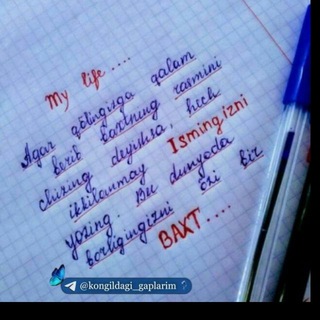 My life ....
Agar qo'lingizga qalam
berib baxtning rasmini
chizing deyishsa, hech
ikkilanmay Ismingizni
yozing. Bu dunyoda
borligingizni o'zi bir
BAXT ....
@kongildagi_gaplarim